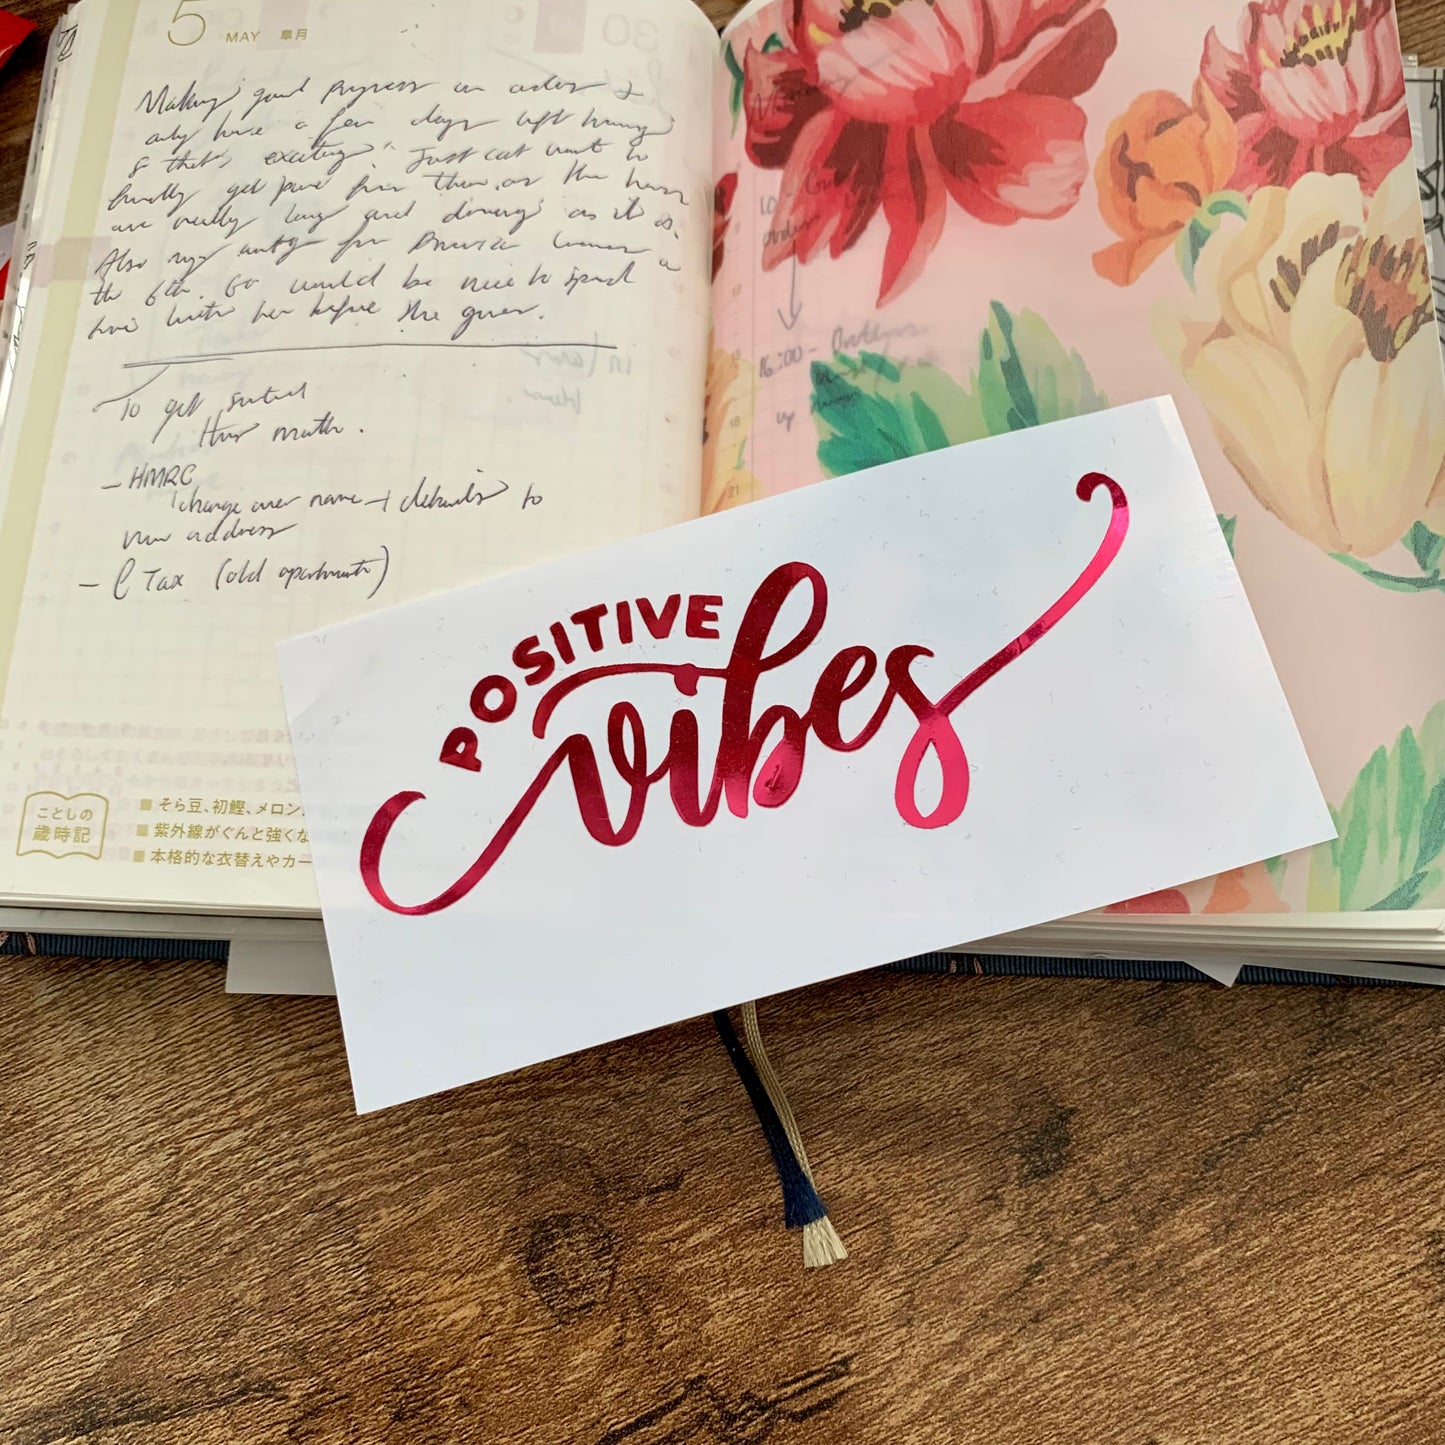 5 MAY 皐月
30
Making good progress on orders &
only have a few days left
So that's exciting! Just can't wait to
finally get paid from them, as the hours
are really long and as it is.
Also my for
the 6th. So would be nice to spend
time with her before she goes.
To get sorted
this month.
- HMRC
change over name + details to
new address
- C Tax (old apartment)
ことしの
歳時記
■ そら豆、初鰹、メロン
■ 紫外線がぐんと強くな
■ 本格的な衣替えやカー
10 -
12
15
16:00 -
18
up
21
POSITIVE
vibes